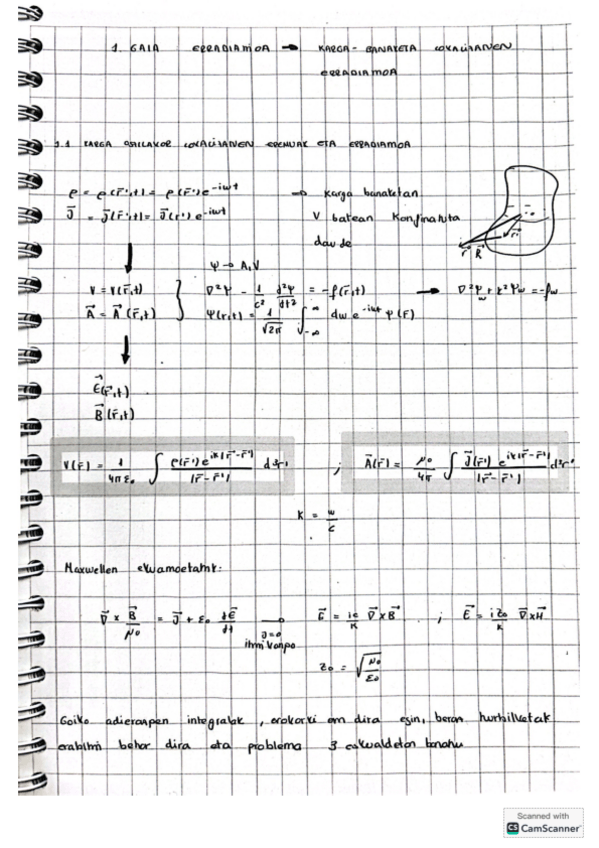 1. GAIA ERRADIAZIOA → KARGA-BANAKETA LOKALIZATUEN
ERRADIAZIOA
1.1 KARGA OSZILAKOR LOKALIZATUEN EREMUAK ETA ERRADIAZIOA
ρ = ρ(r⃗',t) = ρ(r⃗')e^{-iωt} → Karga banaketan
J⃗ = J⃗(r⃗',t) = J⃗(r')e^{-iωt} V batean konfinatuta
daude
r⃗' r⃗ R⃗
ψ → A,V
V = V(r⃗,t) ∇²ψ - 1/c² d²ψ/dt² = -f(r⃗,t) → ∇²ψ_ω + k²ψ_ω = -f_ω
A⃗ = A⃗(r⃗,t) ψ(r,t) = 1/√2π ∫_{-∞}^{∞} dω e^{-iωt} ψ(r⃗)
E⃗(r⃗,t)
B⃗(r⃗,t)
V(r⃗) = 1/4πε₀ ∫ ρ(r⃗')e^{ik|r⃗-r⃗'|}/|r⃗-r⃗'| d³r' ; A⃗(r⃗) = μ₀/4π ∫ J⃗(r⃗')e^{ik|r⃗-r⃗'|}/|r⃗-r⃗'| d³r'
K = ω/c
Maxwellen ekuazioetatik:
∇⃗ × B⃗/μ₀ = J⃗ + ε₀ dE⃗/dt → E⃗ = ic/k ∇⃗×B⃗ ; E⃗ = iz₀/k ∇⃗×H⃗
J=0
iturri kanpo
z₀ = √(μ₀/ε₀)
Goiko adierazpen integralak, orokorki ezin dira egin, beraz hurbilketak
erabili behar dira eta problema 3 eskualdetan banatu